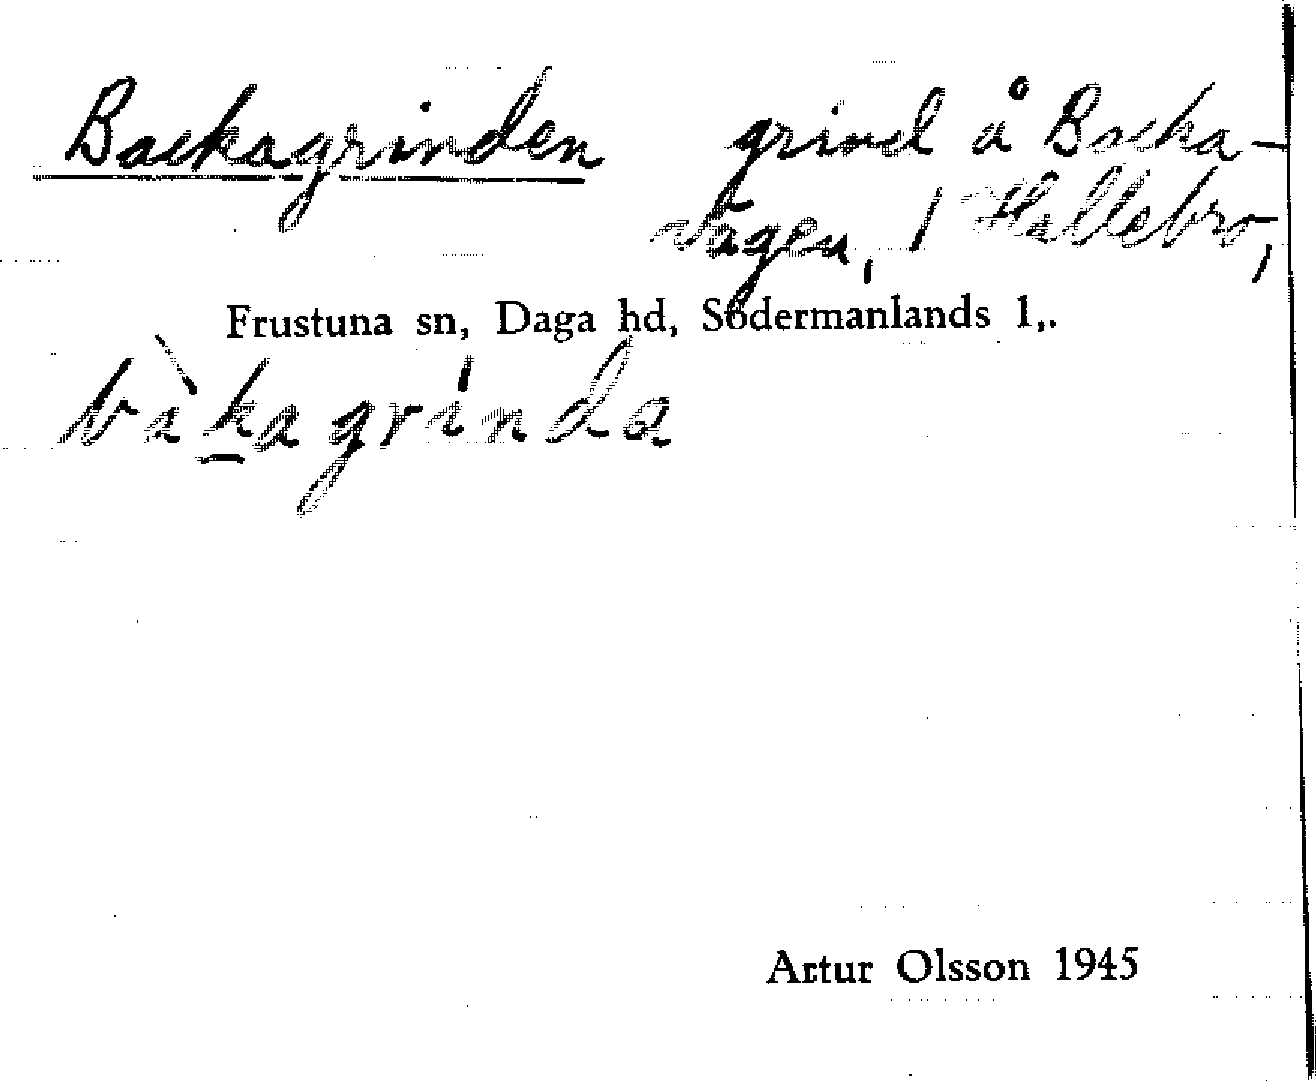 Backagrinden grind å Backa-
vägen, 1 Hällebro,
Frustuna sn, Daga hd, Södermanlands l.
bàkagrinda
Artur Olsson 1945